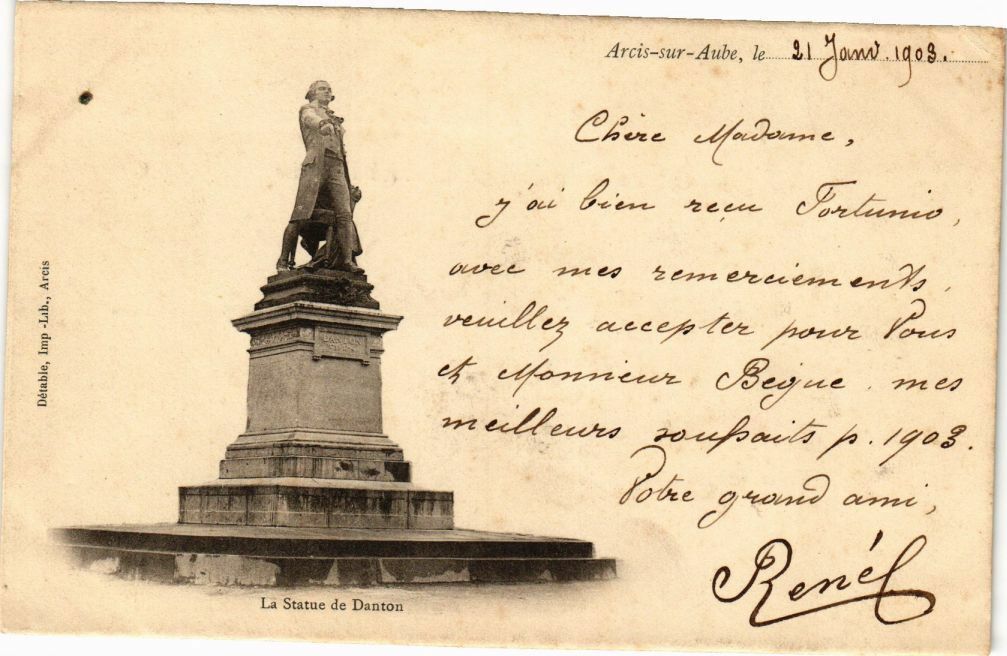 Arcis-sur-Aube, le 21 Janv. 1903.
Chère Madame,
j'ai bien reçu Fortunio,
avec mes remerciements,
veuillez accepter pour Vous
et Monsieur Begue mes
meilleurs souhaits p. 1903.
Votre grand ami,
René
DANTON
La Statue de Danton
Détable, Imp.-Lib., Arcis